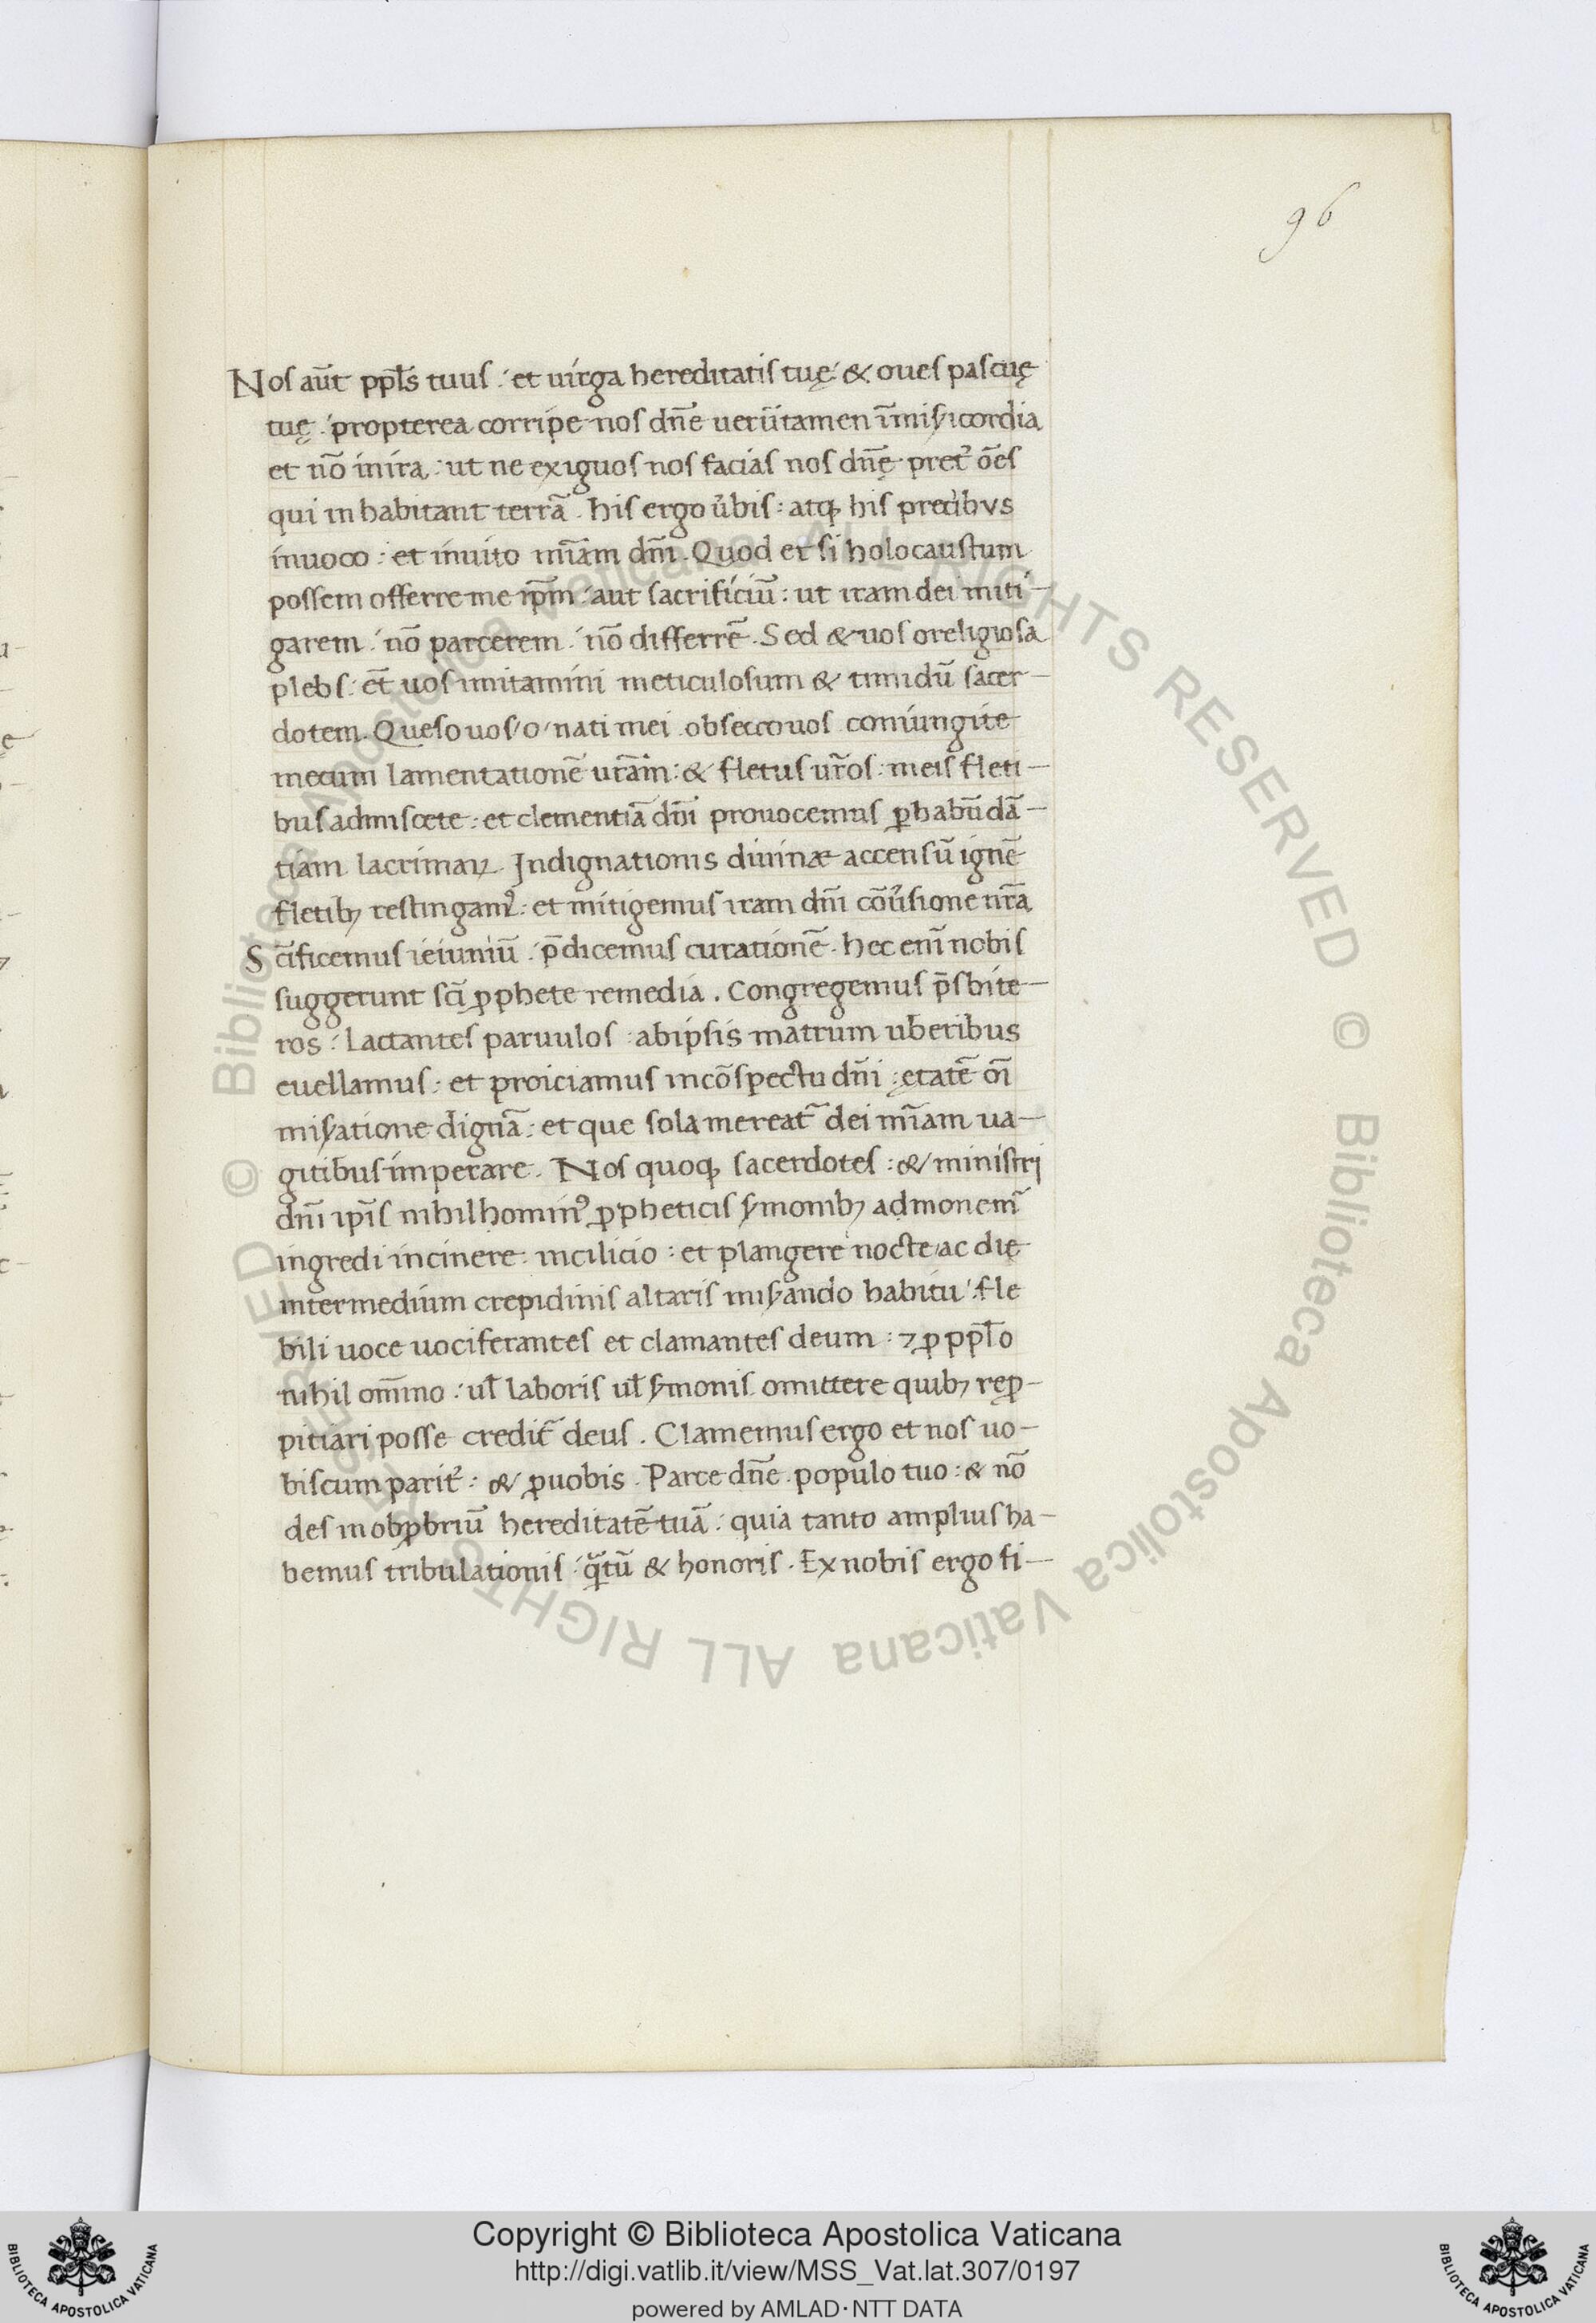 96
Nos aūt ppl̄s tuus : et uirga hereditatis tuę : & oues pascuę
tuę : propterea corripe nos dn̄e uerūtamen ī misẏicordia
et nō in ira : ut ne exiguos nos facias nos dn̄ę pret᾽ ōes
qui in habitant terrā . his ergo u᾽bis : atqꝫ his precibus
inuoco : et inuito m̄iam dn̄i . Quod et si holocaustum
possem offerre me ip̄m : aut sacrificiū : ut iram dei miti-
garem : nō parcerem : nō differrē . Sed & uos o religiosa
plebs : et̄ uos imitamini meticulosum & timidū sacer-
dotem . Queso uos o nati mei . obsecro uos coniungite
mecum lamentationē ur̄am : & fletus ur̄os : meis fleti-
bus admiscete : et clementiā dn̄i prouocemus ꝑ habūdā-
tiam lacrimaꝝ . Indignationis diuinæ accensū ignē
fletibꝫ restingam᾽ : et mitigemus iram dn̄i cōu᾽sione nr̄a
Sc̄ificemus ieiuniū : p̄dicemus curationē . hec eni᷆ nobis
suggerunt sc̄i ꝓphete remedia . Congregemus p̄sbite-
ros : Lactantes paruulos : ab ipsis matrum uberibus
euellamus : et proiciamus in cōspectu dn̄i : ętatē om̄i
misẏatione dignā : et que sola mereat᷆ dei m̄iam ua-
gitibus imperare . Nos quoqꝫ sacerdotes : & ministri
dn̄i ip̄is nihilhomin᾽ ꝓpheticis ẏmonibꝫ admonem᷆
ingredi in cinere : in cilicio : et plangere nocte ac die
inter medium crepidinis altaris misẏando habitu : fle
bili uoce uociferantes et clamantes deum : ⁊ ꝓ ppl̄o
nihil om̄ino : ul̄ laboris ul̄ ẏmonis omittere quibꝫ reꝓ-
pitiari posse credit᷆ deus . Clamemus ergo et nos uo-
biscum parit᾽ : & ꝓ uobis . Parce dn̄e populo tuo : & nō
des in obꝓbriū hereditatē tuā : quia tanto amplius ha-
bemus tribulationis : qᷓtū & honoris . Ex nobis ergo fi-
© Biblioteca Apostolica Vaticana ALL RIGHTS RESERVED © Biblioteca Apostolica Vaticana ALL RIGHTS RESERVED
Copyright © Biblioteca Apostolica Vaticana
http://digi.vatlib.it/view/MSS_Vat.lat.307/0197
powered by AMLAD·NTT DATA
BIBLIOTECA APOSTOLICA VATICANA
BIBLIOTECA APOSTOLICA VATICANA